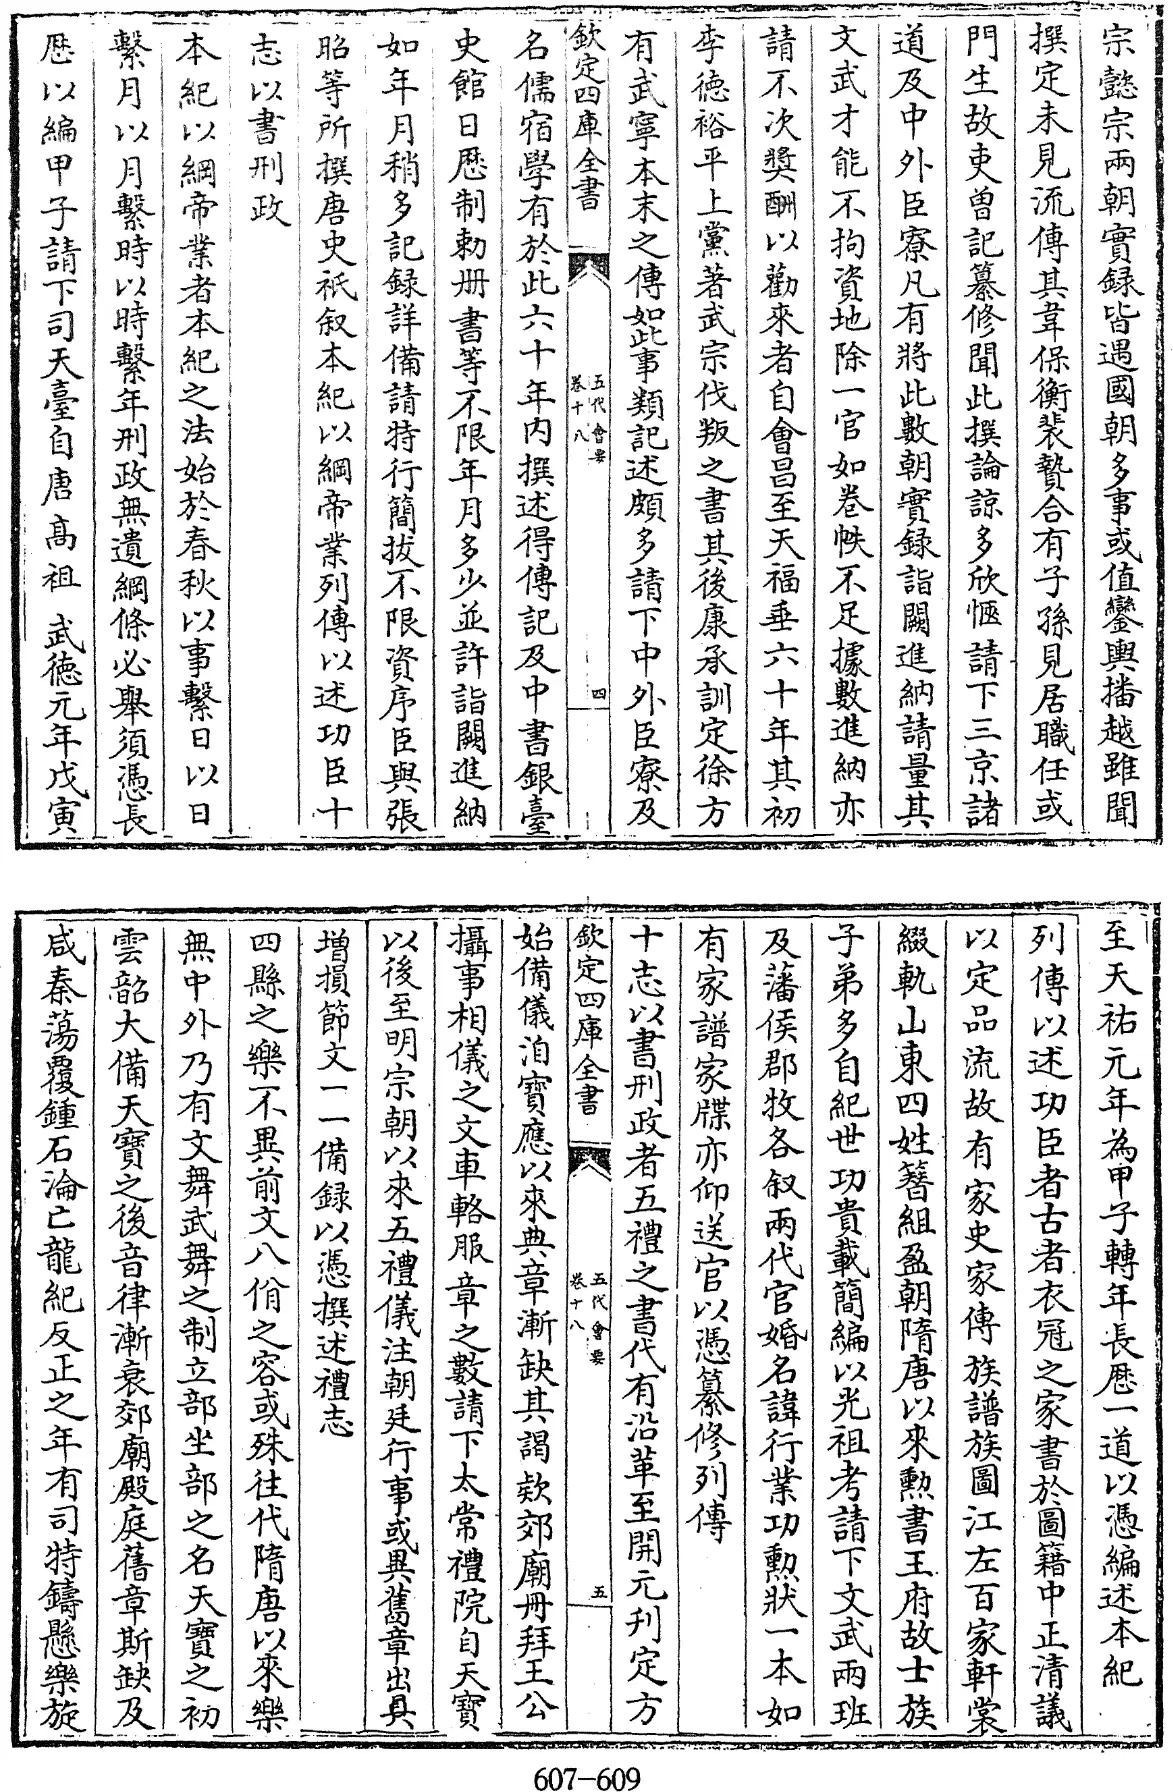 宗懿宗兩朝實録皆遇國朝多事或值鑾輿播越雖聞
撰定未見流傳其韋保衡裴贄合有子孫見居職任或
門生故吏曽記纂修聞此撰論諒多欣愜請下三京諸
道及中外臣寮凡有將此數朝實録詣闕進納請量其
文武才能不拘資地除一官如卷帙不足據數進納亦
請不次奬酬以勸來者自會昌至天福垂六十年其初
李德裕平上黨著武宗伐叛之書其後康承訓定徐方
有武寧本末之傳如此事類記述頗多請下中外臣寮及
欽定四庫全書
五代會要
卷十八
四
名儒宿學有於此六十年内撰述得傳記及中書銀臺
史館日厯制勅册書等不限年月多少並許詣闕進納
如年月稍多記録詳備請特行簡拔不限資序臣與張
昭等所撰唐史祇叙本紀以綱帝業列傳以述功臣十
志以書刑政
本紀以綱帝業者本紀之法始於春秋以事繫日以日
繫月以月繫時以時繫年刑政無遺綱條必舉須憑長
厯以編甲子請下司天臺自唐髙祖武德元年戊寅
至天祐元年為甲子轉年長厯一道以憑編述本紀
列傳以述功臣者古者衣冠之家書於圖籍中正清議
以定品流故有家史家傳族譜族圖江左百家軒裳
綴軌山東四姓簪組盈朝隋唐以來勲書王府故士族
子弟多自紀世功貴載簡編以光祖考請下文武兩班
及藩侯郡牧各叙兩代官婚名諱行業功勲狀一本如
有家譜家牒亦仰送官以憑纂修列傳
十志以書刑政者五禮之書代有沿革至開元刋定方
欽定四庫全書
五代會要
卷十八
五
始備儀洎寳應以來典章漸缺其謁欵郊廟册拜王公
攝事相儀之文車輅服章之數請下太常禮院自天寳
以後至明宗朝以來五禮儀注朝廷行事或異舊章出具
增損節文一一備録以憑撰述禮志
四縣之樂不異前文八佾之容或殊往代隋唐以來樂
無中外乃有文舞武舞之制立部坐部之名天寳之初
雲韶大備天寳之後音律漸衰郊廟殿庭舊章斯缺及
咸秦蕩覆鍾石淪亡龍紀反正之年有司特鑄懸樂旋
607-609